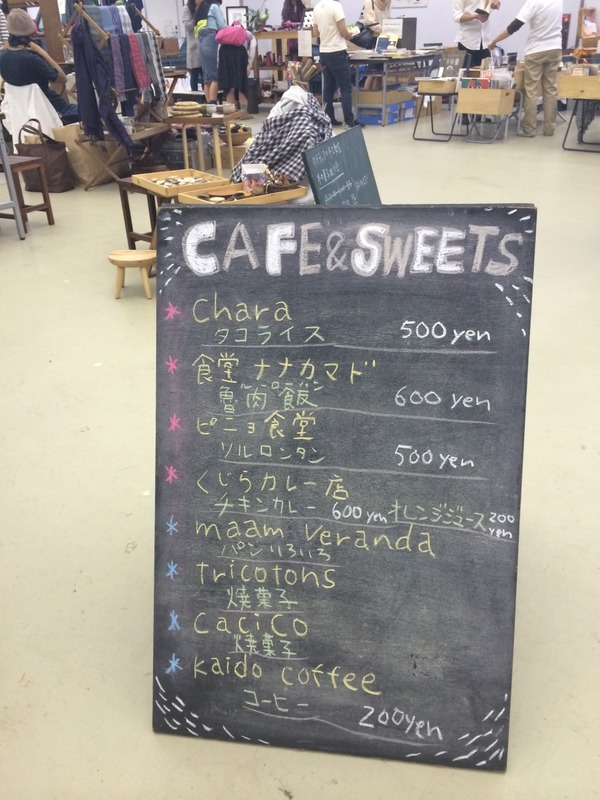 CAFE & SWEETS
Chara
タコライス 500 yen
食堂ナナカマド
ルーローハン
魯肉飯 600 yen
ピニョ食堂
ソルロンタン 500 yen
くじらカレー店
チキンカレー 600 yen オレンジジュース 200 yen
maam veranda
パンいろいろ
tricotons
焼菓子
CaciCo
焼菓子
kaido coffee
コーヒー 200yen